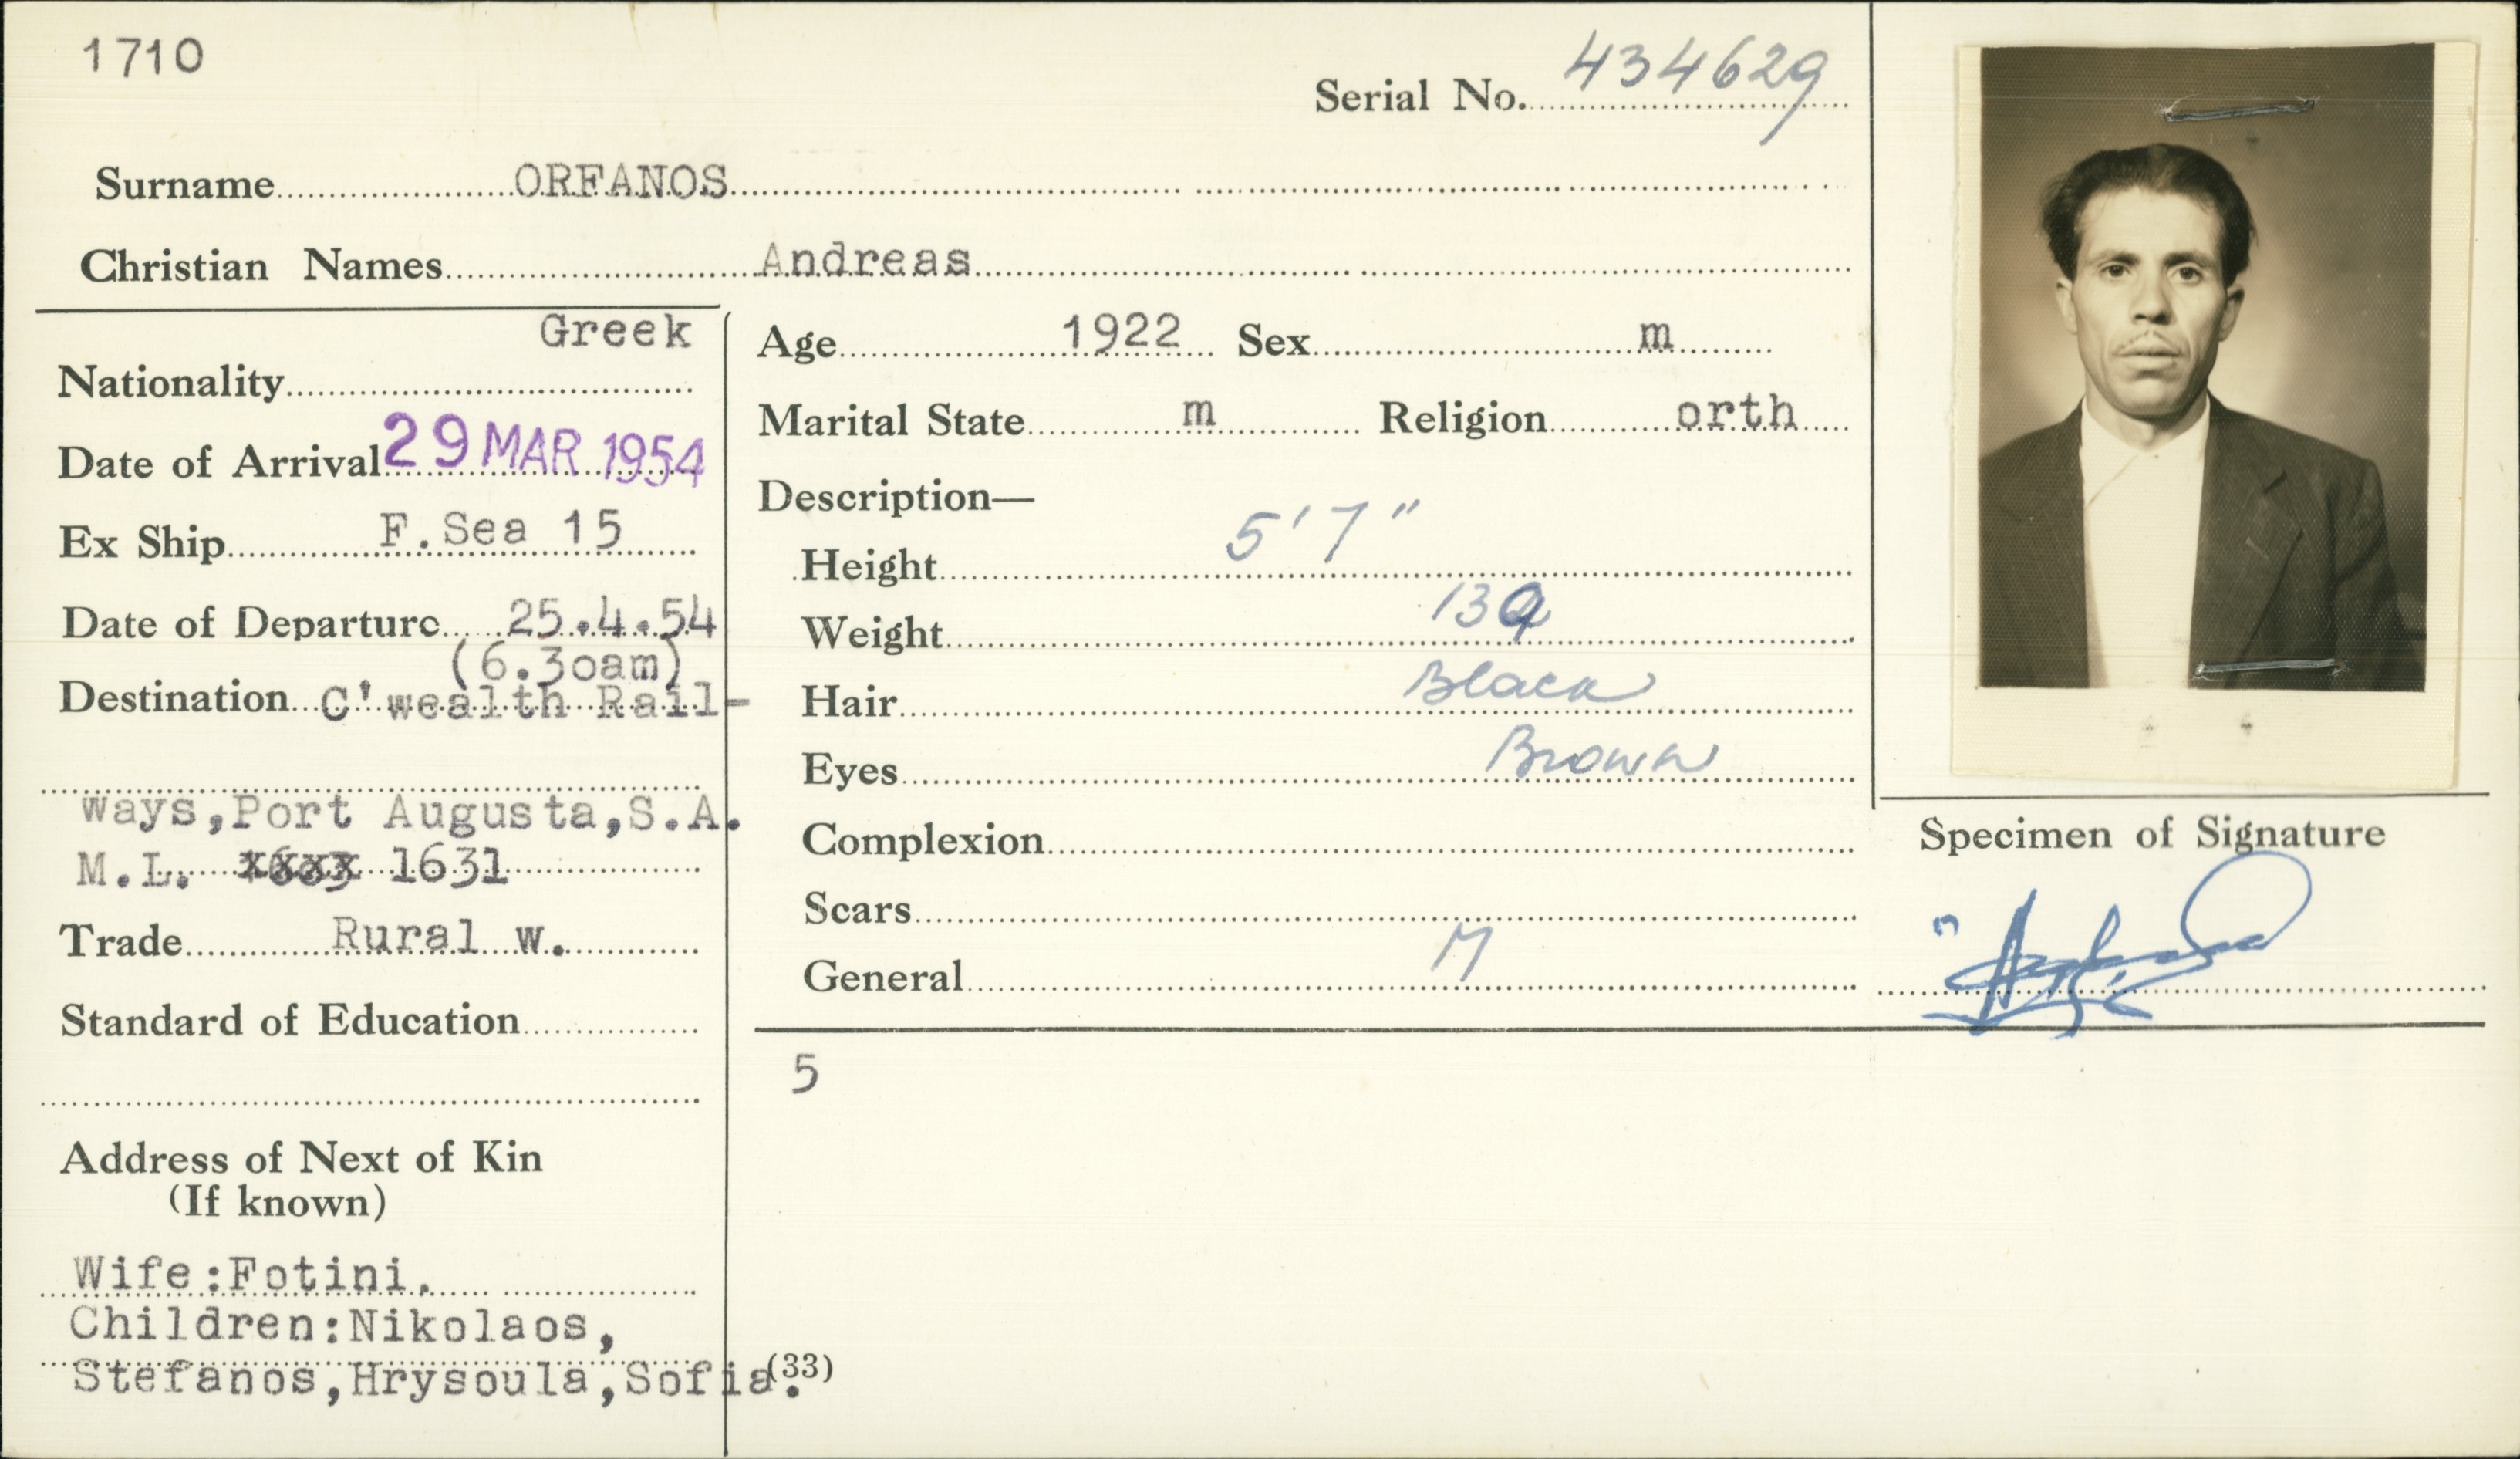 1710
Serial No. 434629
Surname ORFANOS
Christian Names Andreas
Greek
Nationality
Date of Arrival 29 MAR 1954
Ex Ship F.Sea 15
Date of Departure 25.4.54
(6.3oam)
Destination C'wealth Rail-
ways,Port Augusta,S.A.
M.L. 1631
Trade Rural w.
Standard of Education
Address of Next of Kin
(If known)
Wife:Fotini.
Children:Nikolaos,
Stefanos,Hrysoula,Sofia.
(33)
Age 1922 Sex m
Marital State m Religion orth
Description—
Height 5'7"
Weight
Hair Black
Eyes Brown
Complexion
Scars
General M
5
Specimen of Signature